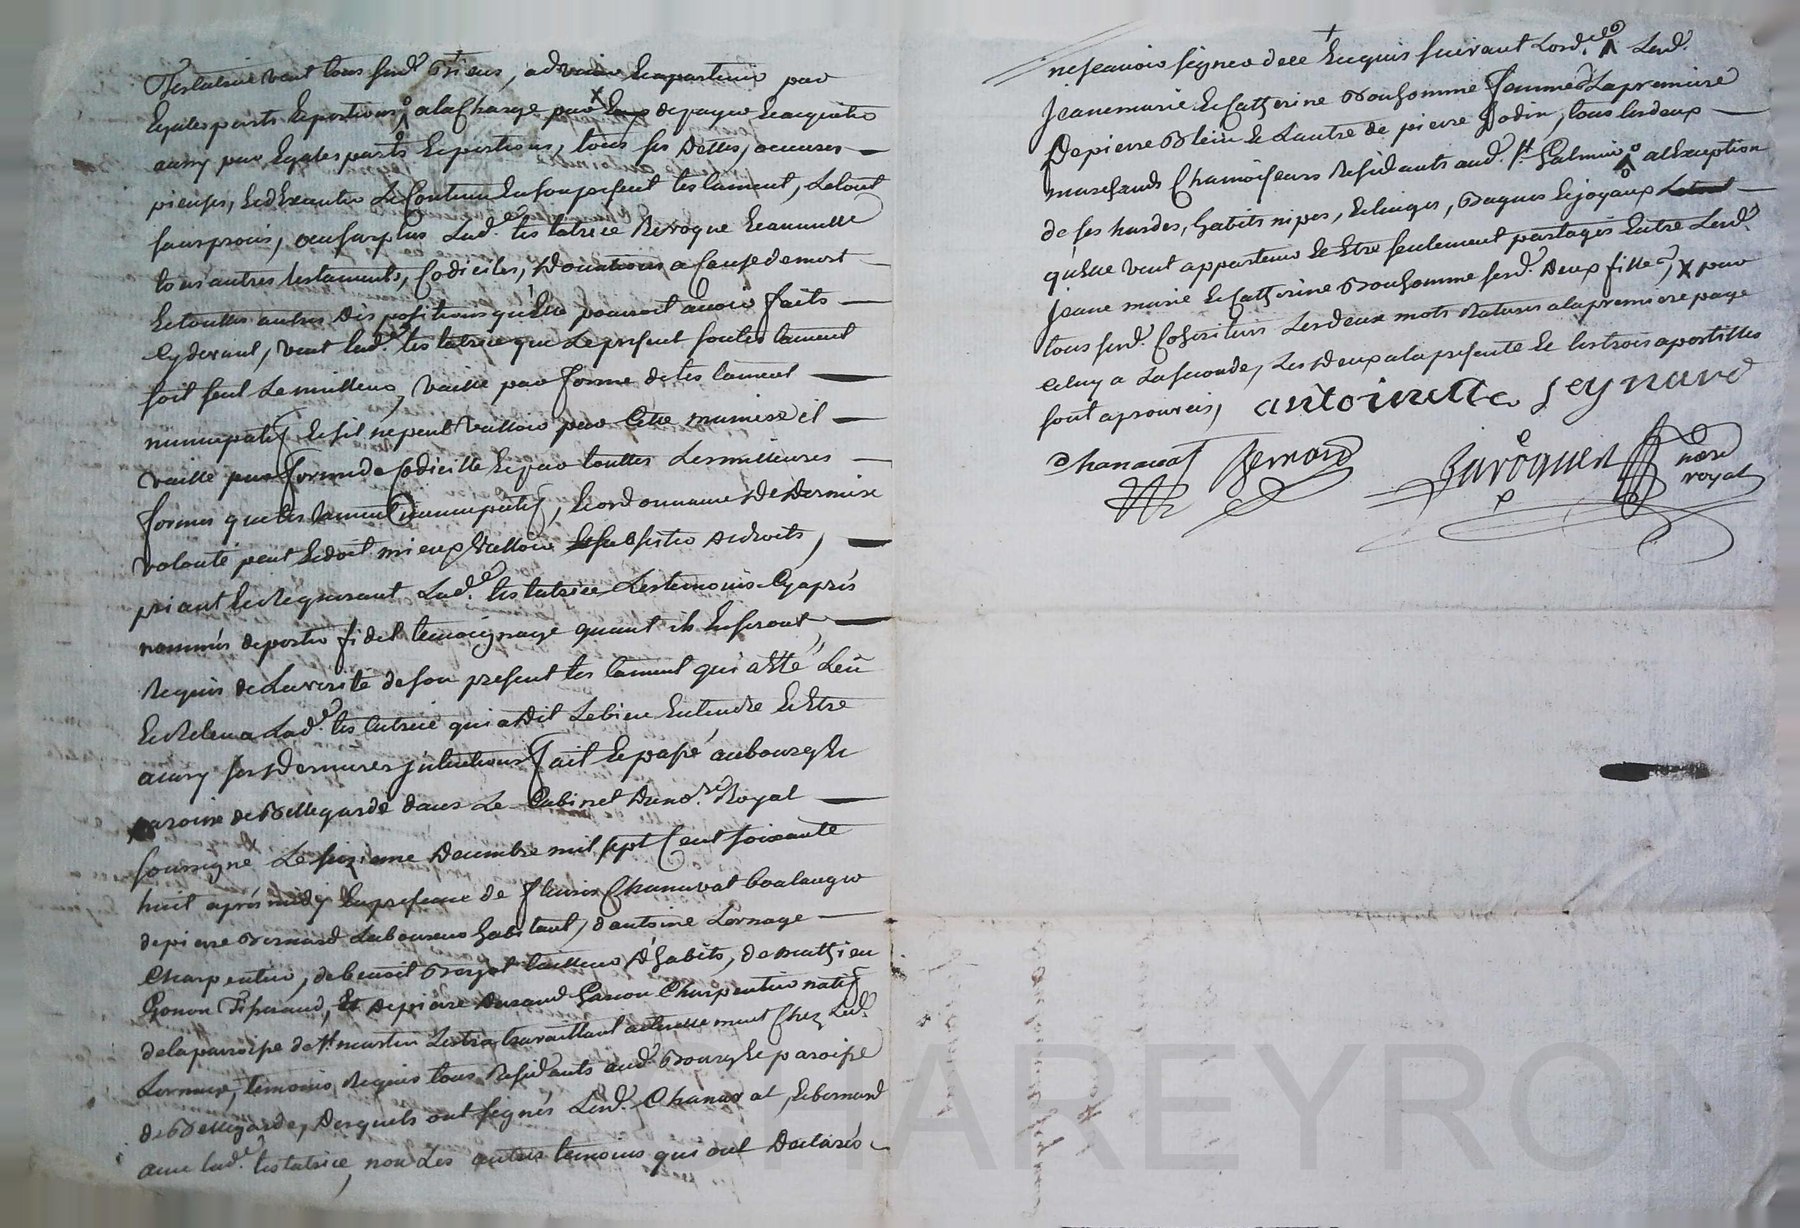 Testatrice veut tous sesd. Biens, advenir Et apartenir par
Egales parts Et portions, a la Charge par Eux de payer Et acquitter
aussy par Egales parts Et portions, tous ses dettes, oeuvres
pieuses, Et d'Executer Le Contenu En son present testament, Le tout
sans procès, au surplus Lad.e testatrice Revoque Et annulle
tous autres testaments, Codiciles, Donations a Cause de mort
Et touttes autres Dispositions qu'Elle pouroit avoir faits
Cy devant, veut lad.e testatrice que Le present son testament
soit seul Le meilleur, vaille par forme de testament
nuncupatif Et s'il ne peut valloir par Cette maniere il
vaille par forme de Codicille Et par touttes Les meilleures
formes que testament nuncupatif, Et ordonnance De Derniere
volonté peut Et doit mieux valloir Et subsister De droits,
priant Et Requerant Lad.e testatrice Les temoins Cy après
nommés de porter fidel temoignage quant ils En seront
Requis de La verité de son present testament qui a Eté Leü
Et Releu a Lad.e testatrice qui a Dit Le bien Entendre Et Etre
ainsy ses Dernieres jntentions fait Et passé au bourg Et
paroisse de Bellegarde dans Le Cabinet Du no.re Royal
soussigné Le seizieme Decembre mil sept Cent soixante
huit après midy En presence de fleurie Chanavat boulanger
de pierre Bernard Laboureur habitant, d'antoine Lornage
Charpentier, de benoit Bayat tailleur D'habits, de mathieu
Gonon Tisserand, Et de pierre Durand Garcon Charpentier natif
de la paroisse de St martin Lestra travaillant actuellement Chez Led.
Lornage, temoins Requis tous Residants aud. Bourg Et paroisse
de Bellegarde, Desquels ont signés Lesd. Chanavat, Et bernard
avec lad.e testatrice, non Les autres temoins qui ont Declarés
ne scavoir signer de ce Enquis suivant Lord.ce Lesd.
Jeanemarie Et Catherine Bonhomme femmes La premiere
De pierre Blein Et Lautre de pierre Jodin, tous Les deux
marchands Chamoiseurs Residants aud. St Galmier a l'Exception
de ses hardes, habits nipes, Et linges, Bagues Et joyaux
qu'Elle veut appartenir Et Etre seulement partagés Entre Lesd.
Jeane marie Et Catherine Bonhomme sesd. Deux filles, X par
tous sesd. Cohéritiers Les deux mots Raturés a la premiere page
Celuy a La seconde, Les Deux a la presente Et les trois apostilles
sont aprouvés, antoinette peynard
Chanavat Bernard no.re
royal